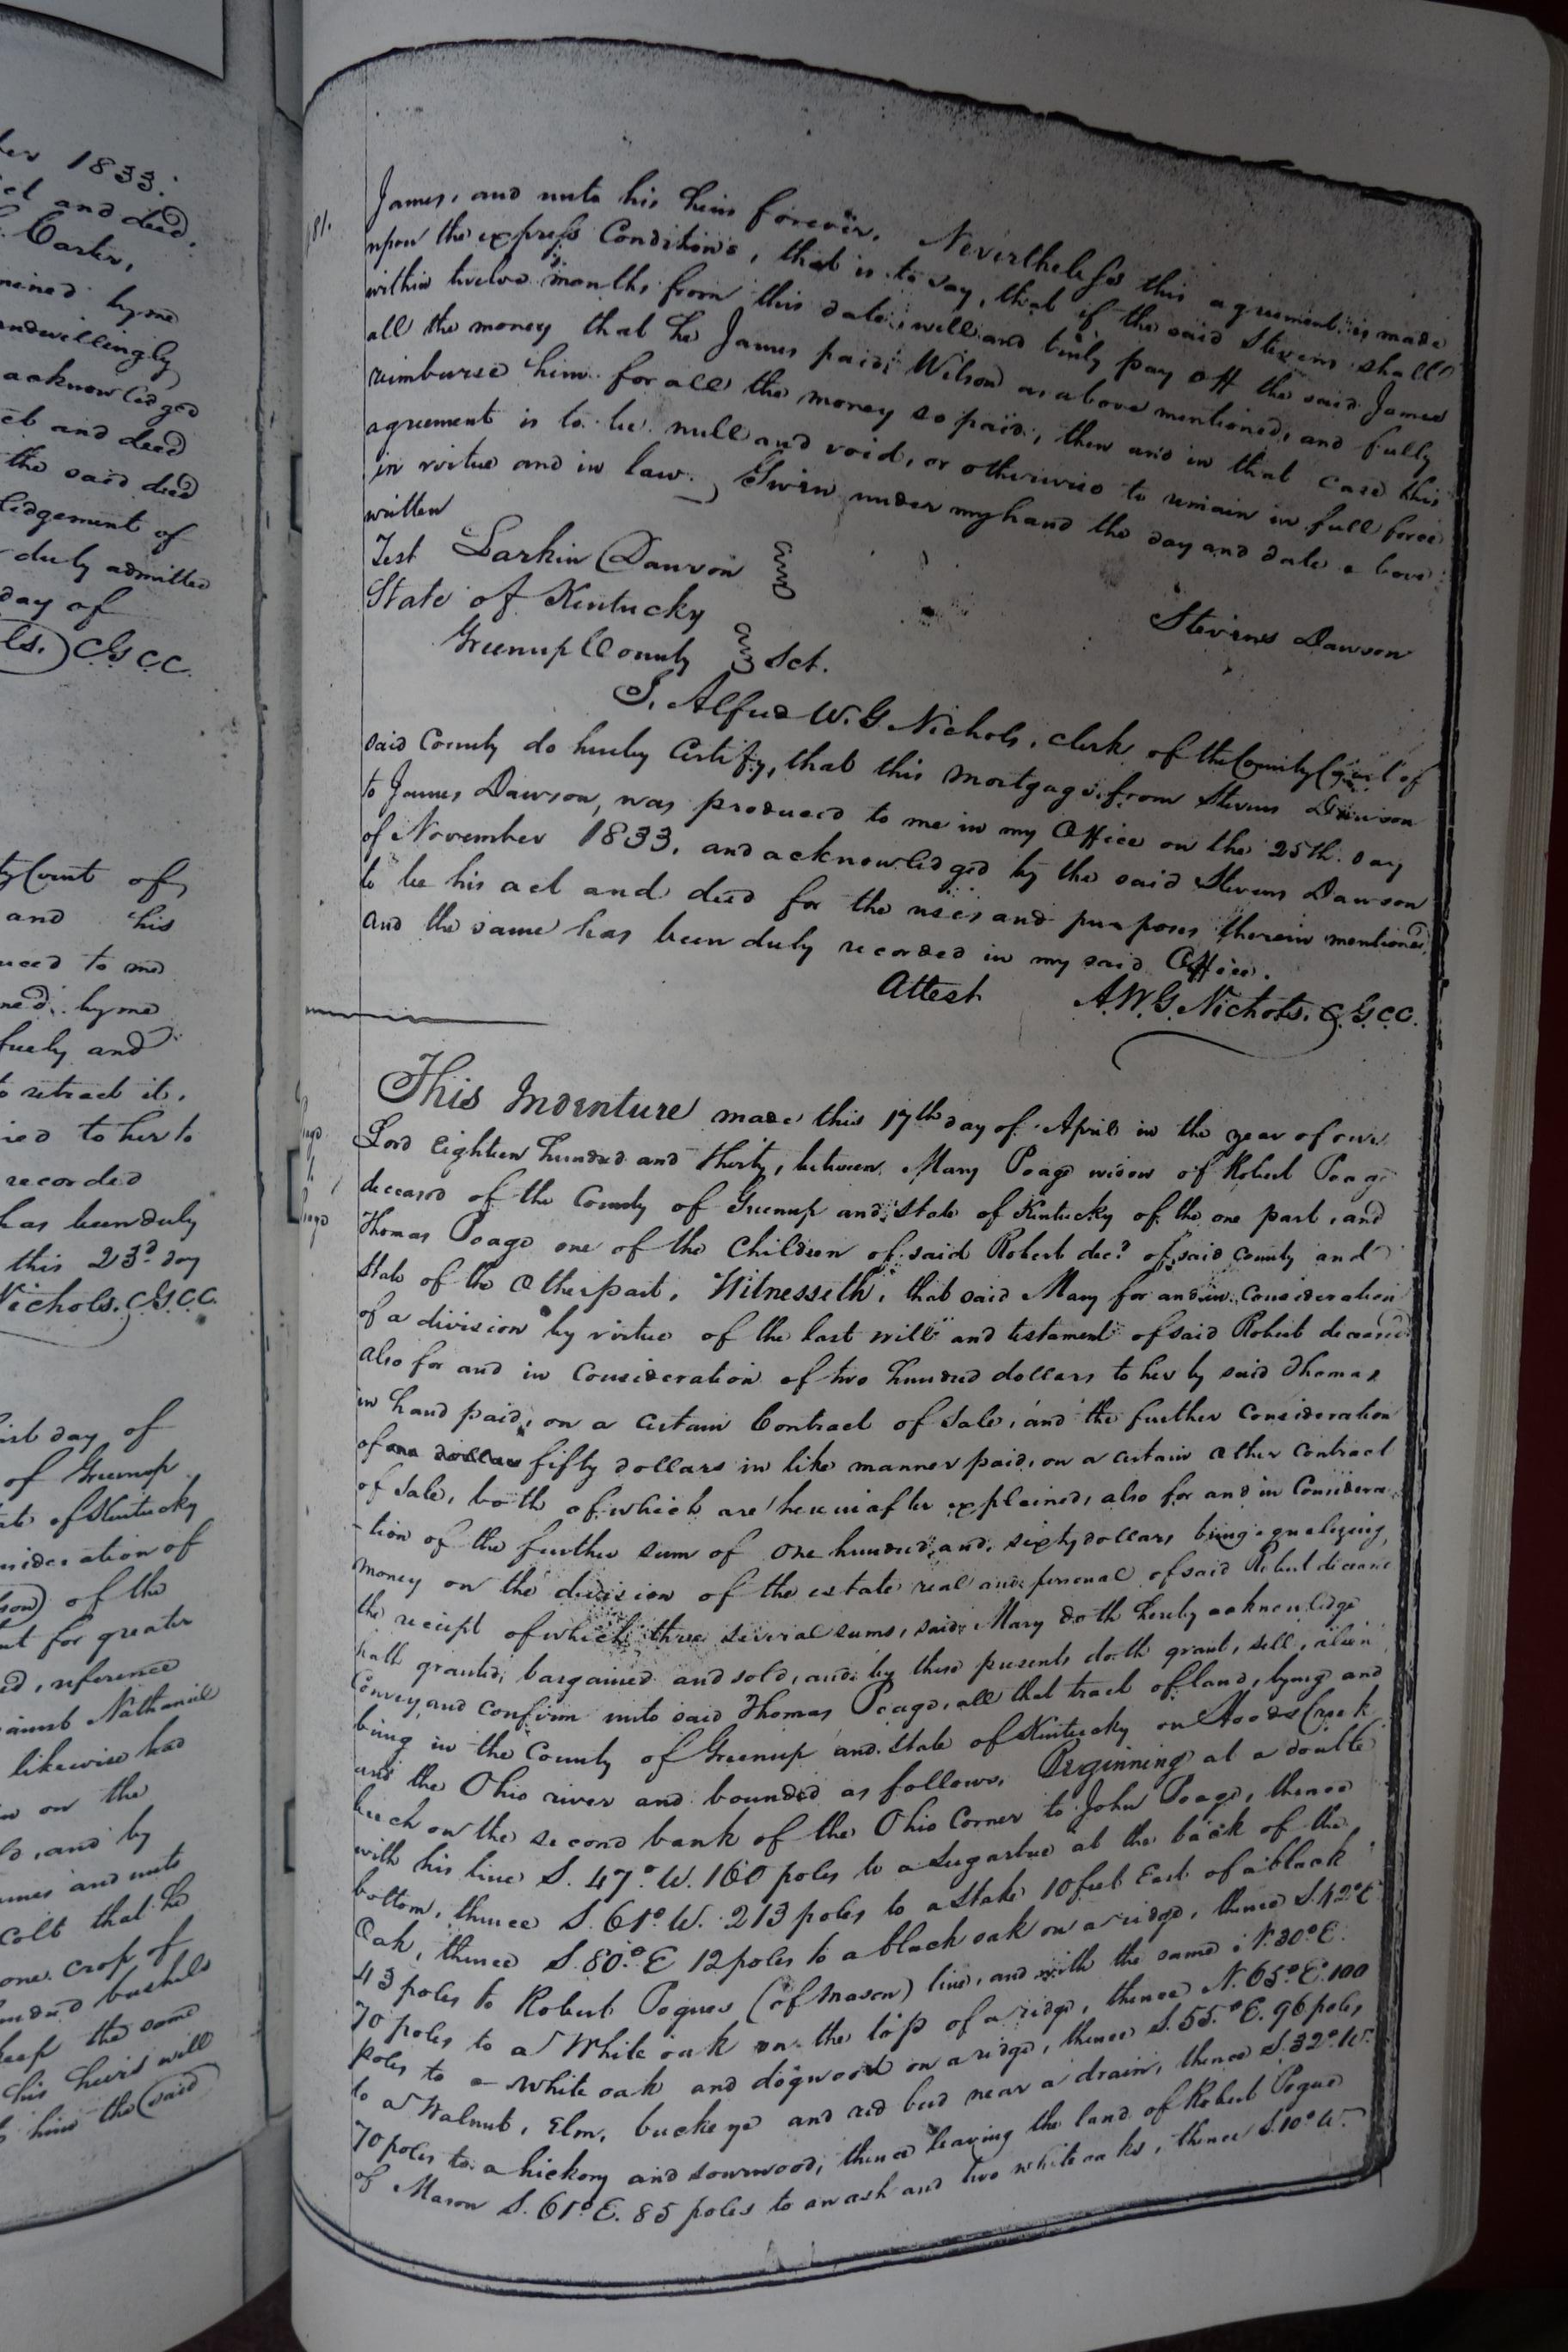 er 1833.
and deed.
Carter,
mined by me
and willingly
acknowledged
act and deed
the said deed
ledgement of
duly admitted
day of
ls. C.G.C.C.
ty Court of
and his
uced to me
ned by me
freely and
to retract it,
ied to her to
recorded
has been duly
this 23d day
Nichols. C.G.C.C.
day of
of Greenup
of Kentucky
consideration of
of the
for greater
reference
Nathaniel
likewise had
on the
and by
and unto
Colt that he
one crop of
bushels
keep the same
his heirs will
him the (said
181.
James, and unto his heirs forever. Nevertheless this agreement is made
upon the express Conditions, that is to say, that if the said Stevens shall
within twelve months from this date, will and truly pay off the said James
all the money that he James paid Wilson as above mentioned, and fully
reimburse him for all the money so paid, then and in that case this
agreement is to be null and void, or otherwise to remain in full force
in virtue and in law. Given under my hand the day and date above
written
Test Larkin Dawson
Stevens Dawson
State of Kentucky
Greenup County Sct.
I, Alfred W. G Nichols, clerk of the County Court of
said County do hereby Certify, that this mortgage from Stevens Dawson
to James Dawson, was produced to me in my Office on the 25th. day
of November 1833, and acknowledged by the said Stevens Dawson
to be his act and deed for the uses and purposes therein mentioned
and the same has been duly recorded in my said Office.
Attest A.W.G. Nichols. C.G.C.C.
This Indenture made this 17th day of April in the year of our
Lord Eighteen hundred and thirty, between Mary Poage widow of Robert Poage
deceased of the County of Greenup and State of Kentucky of the one part, and
Thomas Poage one of the Children of said Robert decd of said county and
State of the other part, Witnesseth, that said Mary for and in Consideration
of a division by virtue of the last will and testament of said Robert deceased
also for and in Consideration of two hundred dollars to her by said Thomas
in hand paid, on a certain Contract of Sale, and the further Consideration
of one dollar fifty dollars in like manner paid, on a certain other Contract
of Sale, both of which are hereinafter explained, also for and in Considera
-tion of the further sum of One hundred, and sixty dollars being equalizing
money on the division of the estate real and personal of said Robert deceased
the receipt of which three several sums, said Mary doth hereby acknowledge
hath granted, bargained and sold, and by these presents doth grant, sell, alien
Convey, and confirm unto said Thomas Poage, all that tract of land, lying and
being in the County of Greenup and State of Kentucky on Hoods Creek
and the Ohio river and bounded as follows, Beginning at a double
beech on the second bank of the Ohio Corner to John Poage, thence
with his line S. 47° W. 160 poles to a Sugartree at the back of the
bottom, thence S. 61° W. 213 poles to a Stake 10 feet East of a black
Oak, thence S. 80° E 12 poles to a black oak on a ridge, thence S. 42° E
43 poles to Robert Pogues (of Mason) line, and with the same N. 30° E.
70 poles to a White oak on the top of a ridge, thence N. 65° E. 100
poles to a white oak and dogwood on a ridge, thence S. 55° E. 96 poles
to a Walnut, Elm, buckeye and red bud near a drain, thence S. 32° W.
70 poles to a hickory and sourwood, thence leaving the land of Robert Pogue
of Mason S. 61° E. 85 poles to an ash and two white oaks, thence S. 10° W.